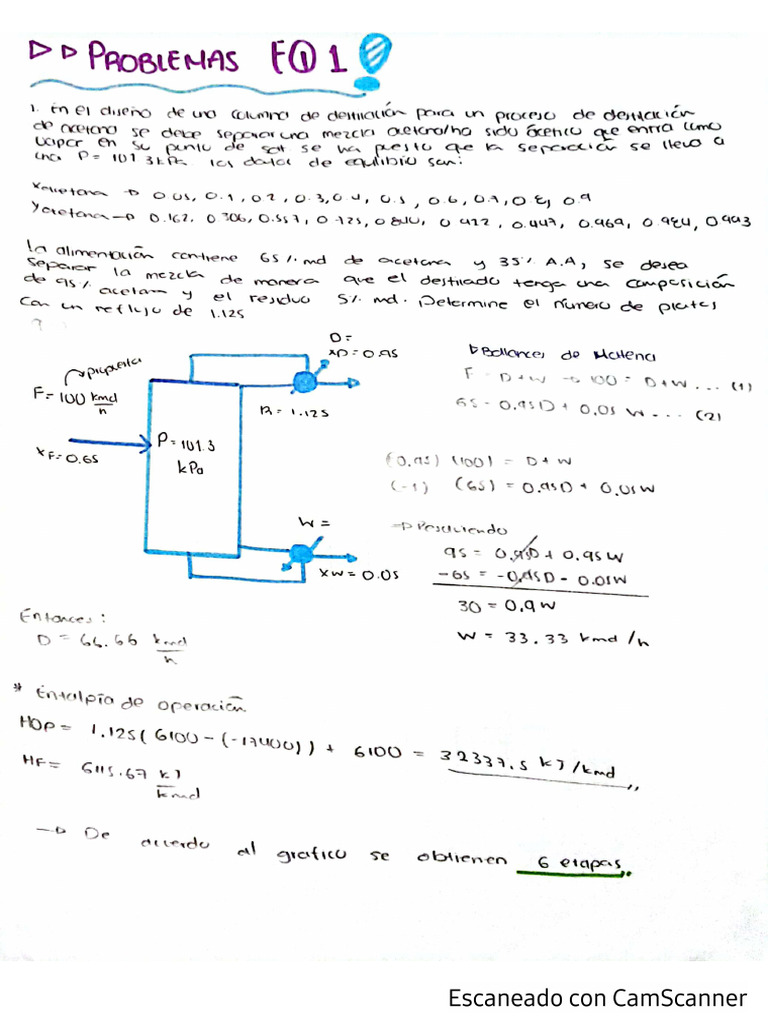 ▷▷ PROBLEMAS EQ 1
1. En el diseño de una columna de destilación para un proceso de destilación
de acetona se debe separar una mezcla acetona/ácido acético que entra como
vapor en su punto de sat se ha puesto que la separación se lleve a
una P= 101.3 kPa los datos de equilibrio son:
Xacetona → 0.05, 0.1, 0.2, 0.3, 0.4, 0.5, 0.6, 0.7, 0.8, 0.9
Yacetona → 0.162, 0.306, 0.557, 0.725, 0.840, 0.922, 0.947, 0.969, 0.984, 0.993
La alimentación contiene 65 % mol de acetona y 35% A.A, se desea
separar la mezcla de manera que el destilado tenga una composición
de 95% acetona y el residuo 5% mol. Determine el número de platos
con un reflujo de 1.125
?
propuesta
F= 100 kmol/h
XF= 0.65
P= 101.3 kPa
D=
XD= 0.95
R= 1.125
W=
XW= 0.05
▷ Balances de Materia
F = D+W → 100 = D+W ... (1)
65 = 0.95D + 0.05 W ... (2)
(0.95) (100) = D+W
(-1) (65) = 0.95D + 0.05W
→ Resolviendo
95 = 0.95D + 0.95W
-65 = -0.95D - 0.05W
30 = 0.9W
W = 33.33 kmol/h
Entonces:
D = 66.66 kmol/h
* Entalpía de operación
HOP = 1.125(6100 - (-17400)) + 6100 = 32337.5 kJ/kmol
HF = 6115.67 kJ/kmol
→ De acuerdo al grafico se obtienen 6 etapas
Escaneado con CamScanner